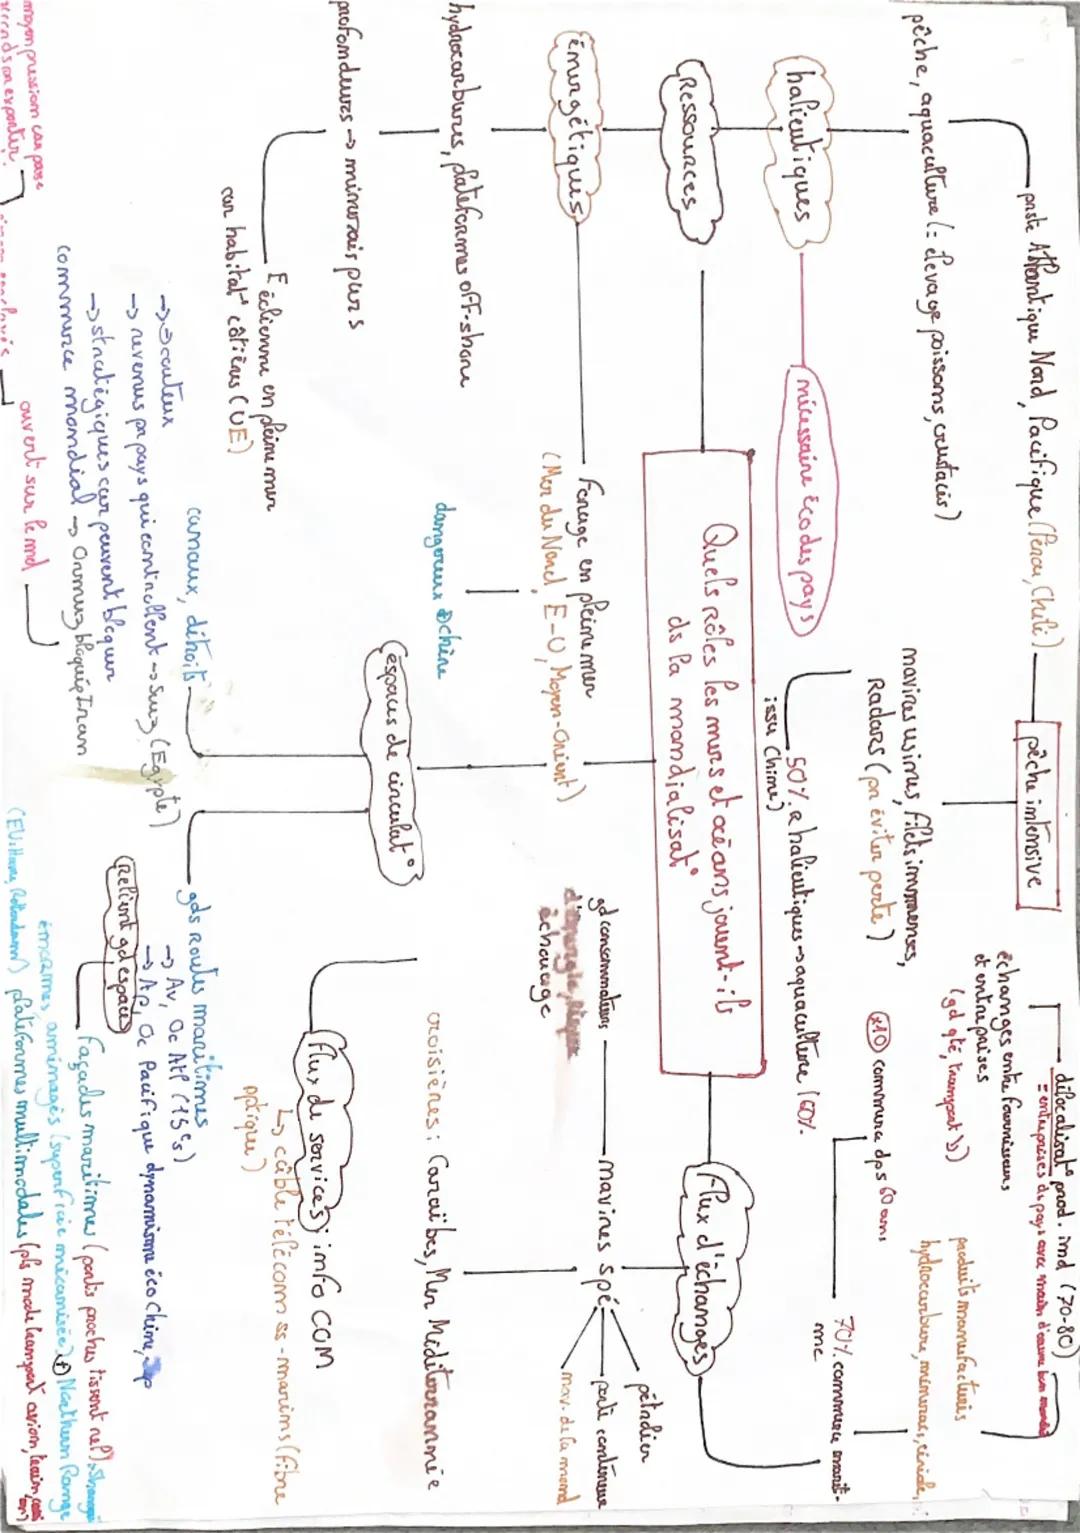 Quels rôles les mers et océans jouent-ils
ds la mondialisat°
Ressources
halieutiques
nécessaire éco des pays
pêche, aquaculture (= élevage poissons, crustacés)
Atlantique Nord, Pacifique (Pérou, Chili)
pêche intensive
navires usines, filets immenses,
Radars (pr éviter perte)
50% halieutiques → aquaculture (60%
issu Chine)
énergétiques
Forage en pleine mer
(Mer du Nord, E-U, Moyen-Orient)
hydrocarbures, plateformes off-shore
dangereux
profondeurs → minerais purs
E éolienne en pleine mer
car habitat° côtières (UE)
espaces de circulat°
canaux, détroits
→ ⊖ couteux
→ revenus pr pays qui contrôllent → Suez (Egypte)
→ stratégiques car peuvent bloquer
commerce mondial → Ormuz bloqué p Iran
ouvert sur le md
moyen pression car pays
gds Routes maritimes
→ Av, Oc Atl (15e s)
→ Ap, Oc Pacifique dynamisme éco Chine, Jap
Relient gd espaces
Façades maritimes (ports proches tissent rel°)
énormes, aménagés (superficie mécanisée) ⊕ Northern Range
plateformes multimodales (pls mode transport avion, train,
Flux d'échanges
x10 commerce dps 60 ans
70% commerce marit-
ime
produits manufacturés
hydrocarbure, minerais, céréale,
délocalisat° prod. ind (70-80)
= entreprises ds pays avec main d'oeuvre bon marché
échanges entre fournisseurs
et entreprises
(gd qté, transport
navires spé
pétrolier
porte conteneur
gd consommateurs
échouage
croisières : Caraïbes, Mer Méditerrannée
Flux de services ; info COM
↳ câble télécom ss-marins (fibre
optique)